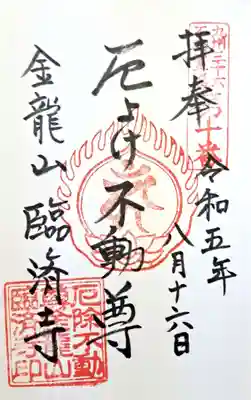 奉拝
令和五年
八月十六日
厄よけ不動尊
金龍山臨済寺
厄除不動
金龍山
臨済寺印